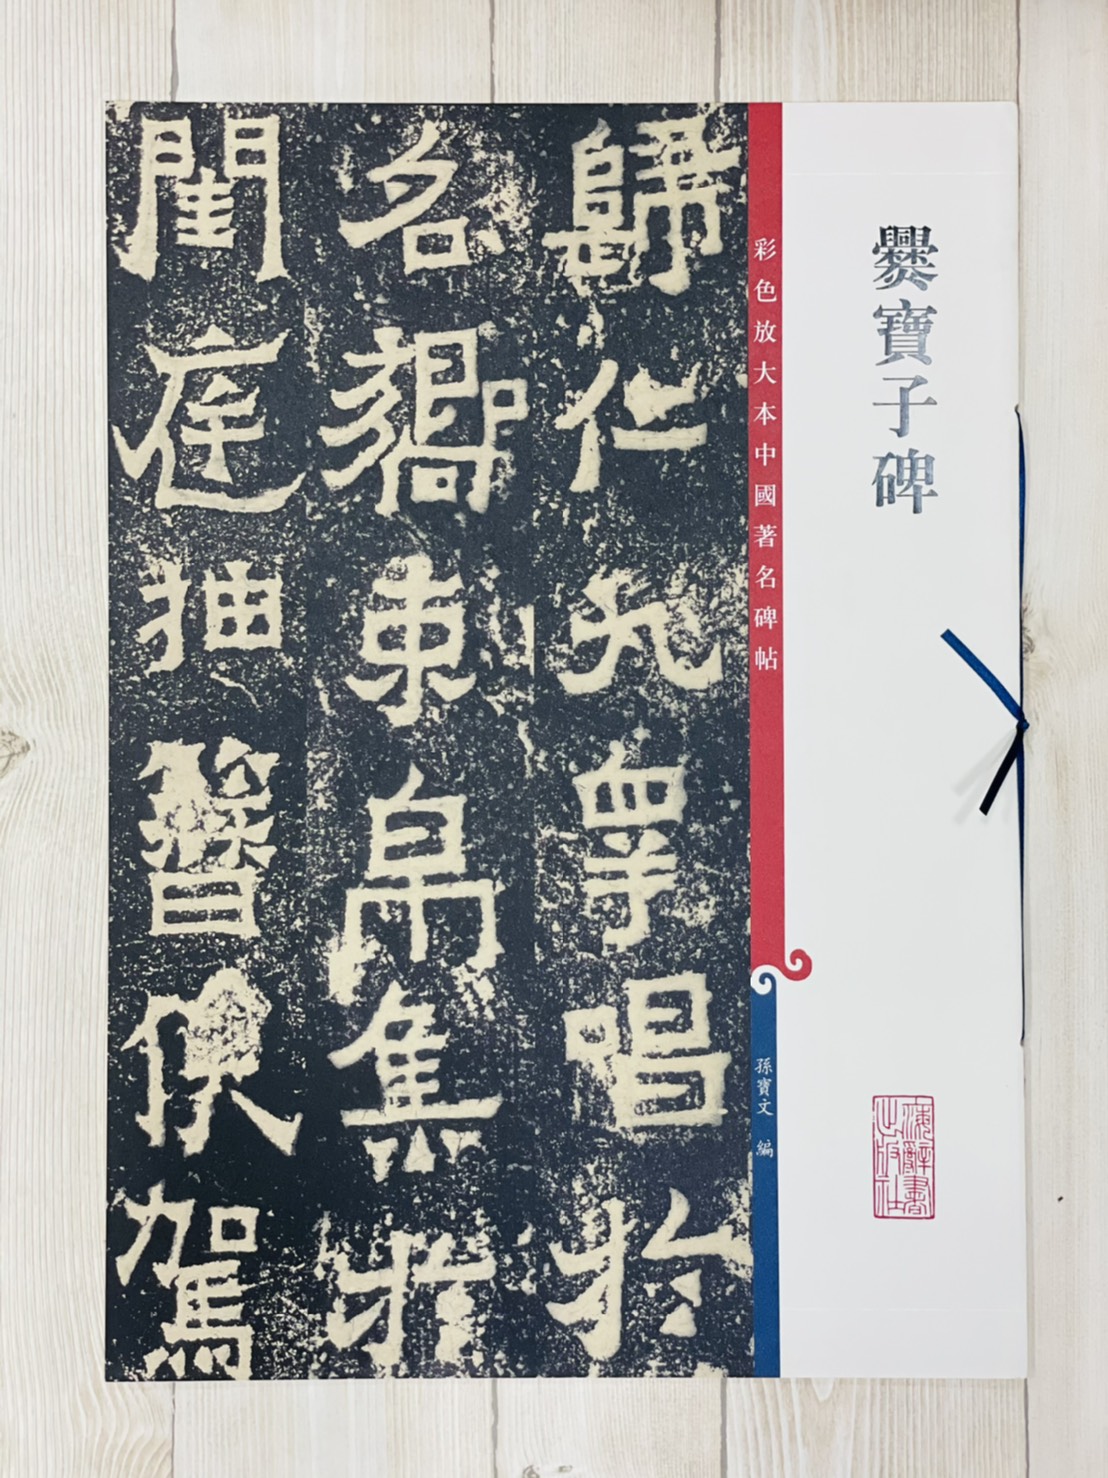 爨寶子碑
彩色放大本中國著名碑帖
孫寶文 編
上海辭書出版社
歸仁九皋唱於
名嚮束帛集於
閨庭抽簪俟駕